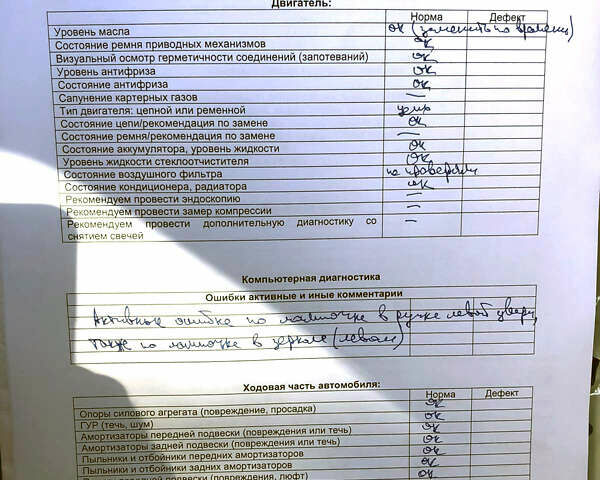 Двигатель:
Норма Дефект
Уровень масла ок (заменить по времени)
Состояние ремня приводных механизмов ок
Визуальный осмотр герметичности соединений (запотеваний) ок
Уровень антифриза ок
Состояние антифриза ок
Сапунение картерных газов —
Тип двигателя: цепной или ременной цепь
Состояние цепи/рекомендация по замене ок
Состояние ремня/рекомендация по замене —
Состояние аккумулятора, уровень жидкости ок
Уровень жидкости стеклоочистителя ок
Состояние воздушного фильтра не проверяли
Состояние кондиционера, радиатора ок
Рекомендуем провести эндоскопию —
Рекомендуем провести замер компрессии —
Рекомендуем провести дополнительную диагностику со —
снятием свечей
Компьютерная диагностика
Ошибки активные и иные комментарии
Активные ошибка по лампочке в ручке левой двери,
также по лампочке в зеркале (левом)
Ходовая часть автомобиля:
Норма Дефект
Опоры силового агрегата (повреждение, просадка) ок
ГУР (течь, шум) ок
Амортизаторы передней подвески (повреждения или течь) ок
Амортизаторы задней подвески (повреждения или течь) ок
Пыльники и отбойники передних амортизаторов ок
Пыльники и отбойники задних амортизаторов ок
передней подвески (повреждения, люфт) ок